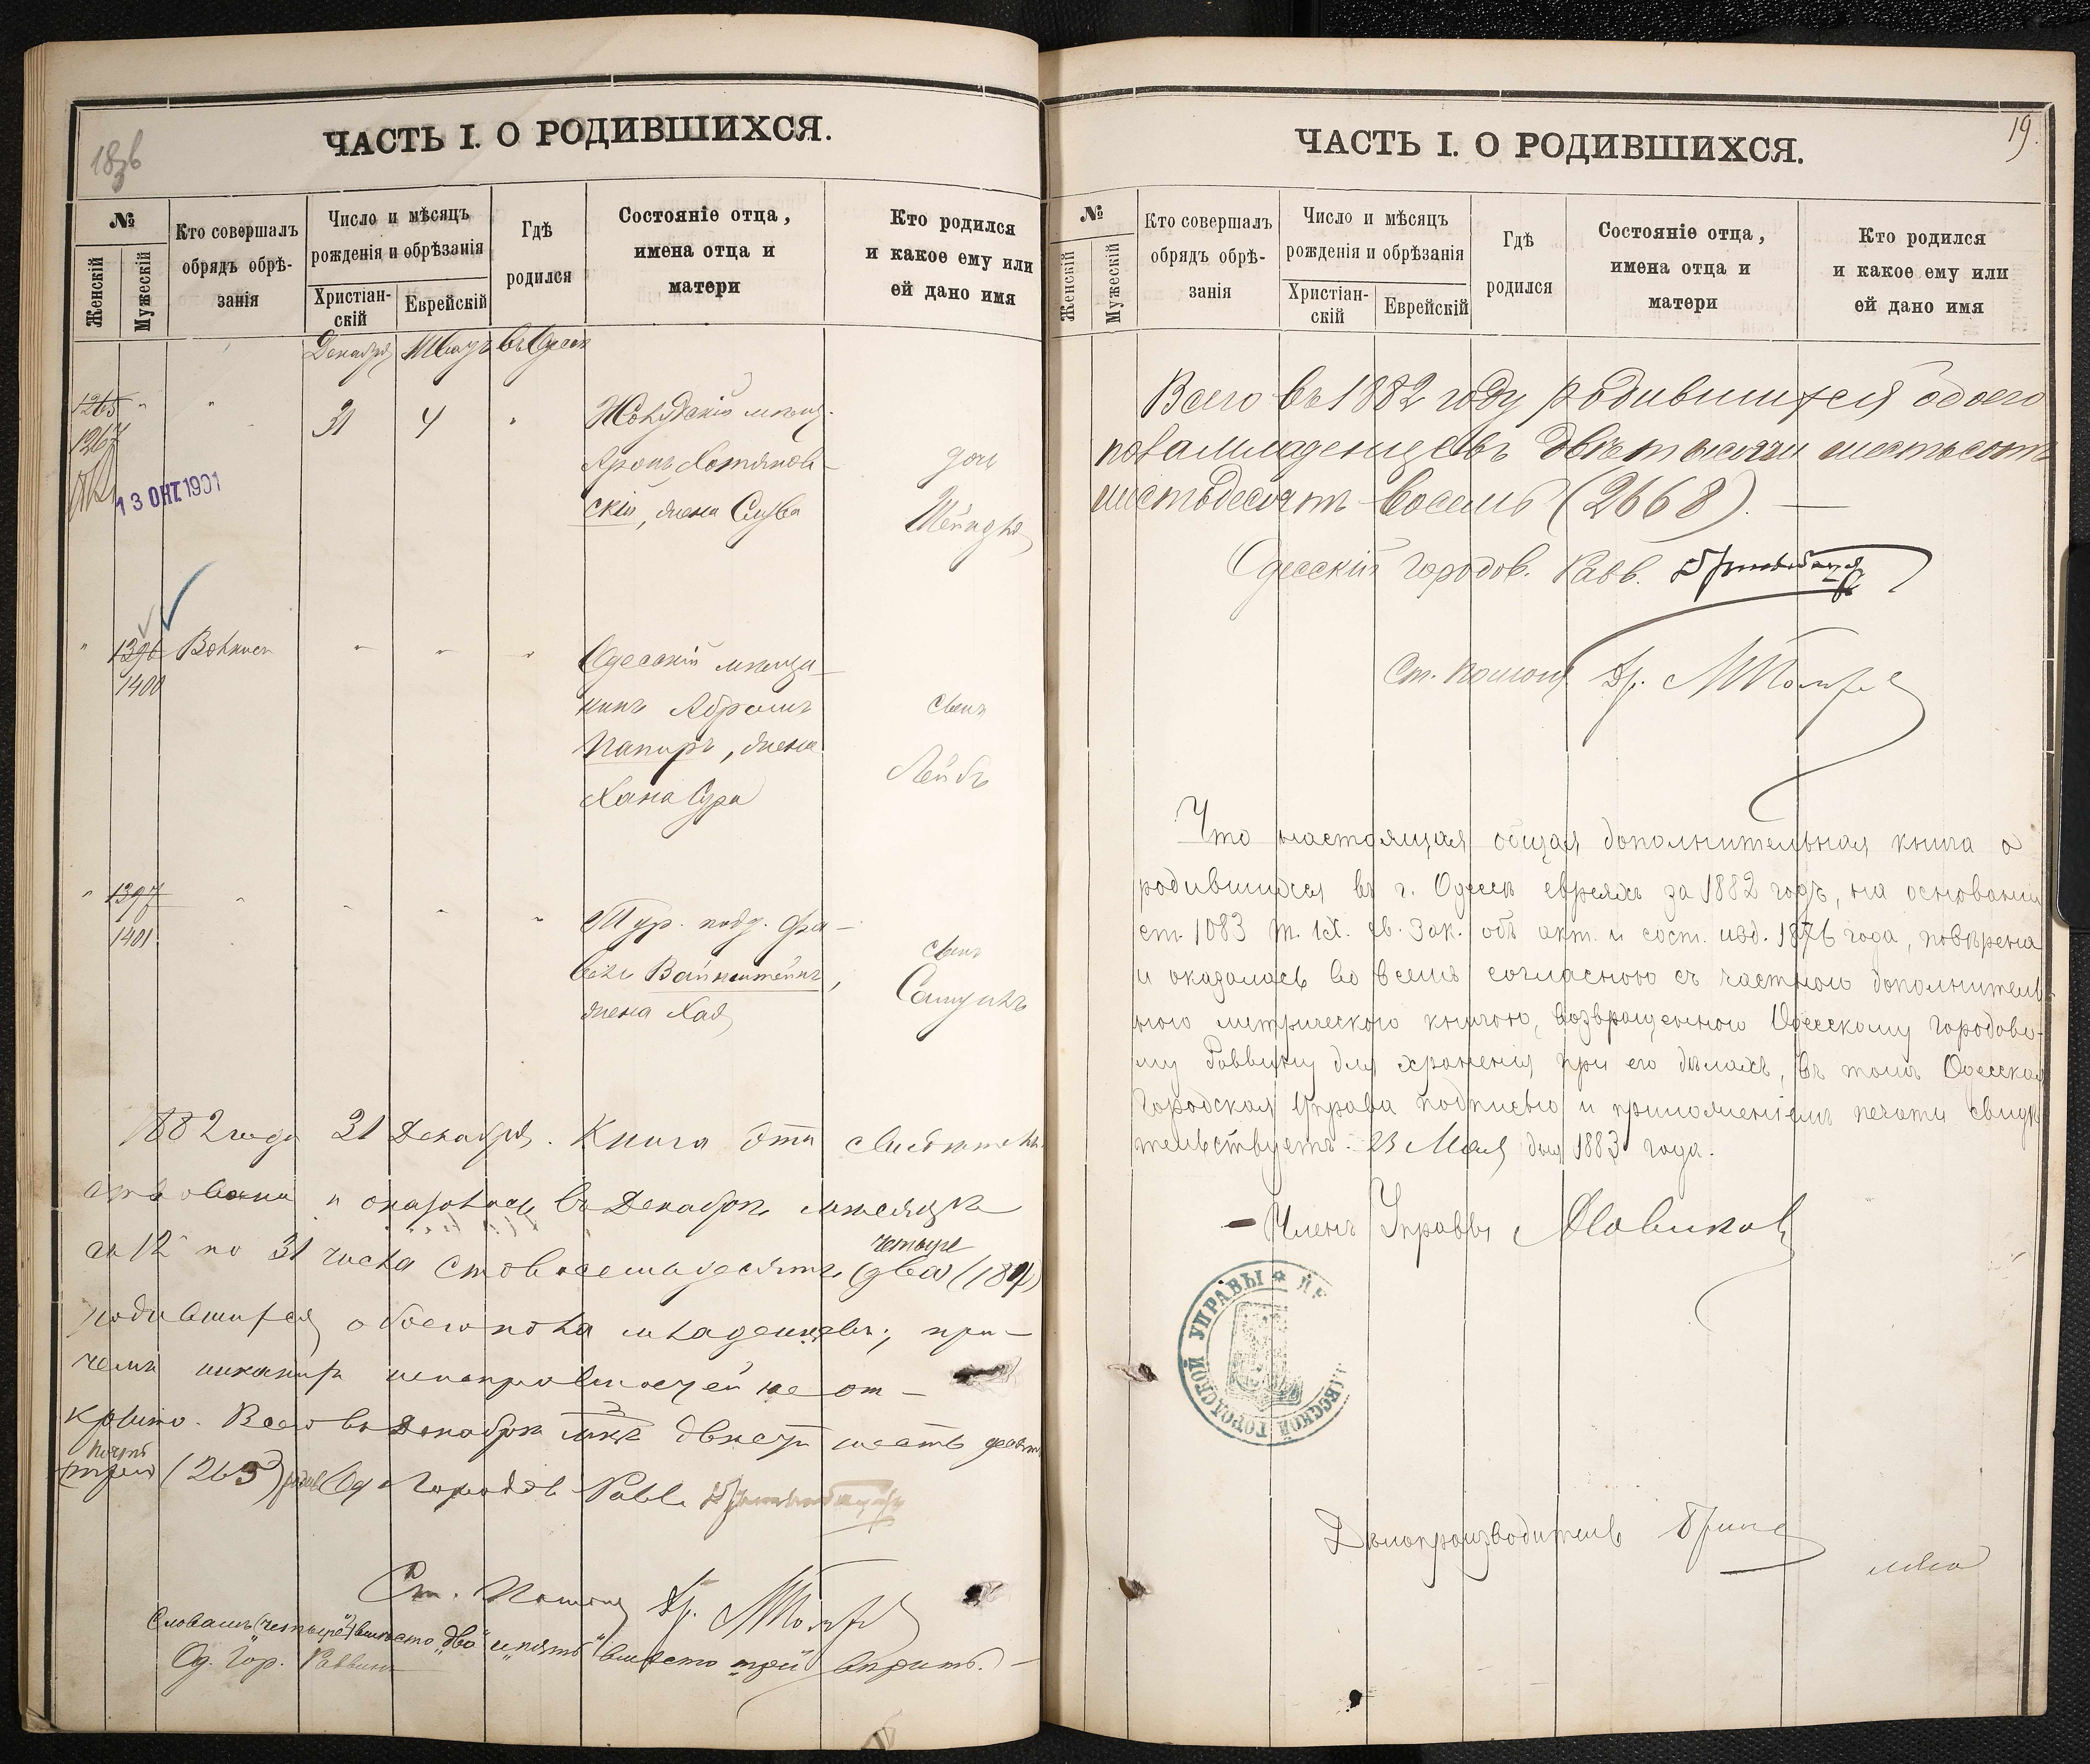 1836
ЧАСТЬ I. О РОДИВШИХСЯ.
№
Женскій
Мужескій
Кто совершалъ
обрядъ обрѣ-
занія
Число и мѣсяцъ
рожденія и обрѣзанія
Христіан-
скій
Еврейскій
Гдѣ
родился
Состояніе отца,
имена отца и
матери
Кто родился
и какое ему или
ей дано имя
Декабря
въ Одессѣ
1265
1267
31
4
13 ОКТ 1901
дочь
Шейндля
скій, жена Слува
1396
1400
Одесскій мѣща-
нинъ Абрамъ
Папиръ, жена
Хана Сура
сынъ
Лейбъ
1397
1401
Тур. подд. Фа-
Вайнштейнъ,
жена Хая
сынъ
Самуилъ
1882 года 31 Декабря. Книга эта свидѣтель-
ствована и оказалось въ Декабрѣ мѣсяцѣ
четыре
съ 12 по 31 числа сто восемьдесятъ (два) (184)
родившихся обоего пола младенцевъ, при-
чемъ никакихъ неисправностей не от-
крыто. Всего въ Декабрѣ двѣсти шесть десятъ
пять
три (265) Од. Городов. Равв.
Ст. Помощ. Др.
Словамъ „четыре" вмѣсто „два" и „пять" вмѣсто „три" вѣрить.
Од. Гор. Раввинъ
19.
ЧАСТЬ I. О РОДИВШИХСЯ.
№
Женскій
Мужескій
Кто совершалъ
обрядъ обрѣ-
занія
Число и мѣсяцъ
рожденія и обрѣзанія
Христіан-
скій
Еврейскій
Гдѣ
родился
Состояніе отца,
имена отца и
матери
Кто родился
и какое ему или
ей дано имя
Всего въ 1882 году родившихся обоего
пола младенцевъ двѣ тысячи шестьсотъ
шестьдесятъ восемь (2668). —
Одесскій Городов. Равв.
Ст. Помощ. Др.
Что настоящая общая дополнительная книга о
родившихся въ г. Одессѣ евреяхъ за 1882 годъ, на основаніи
ст. 1083 т. IX. св. Зак. объ акт. и сост. изд. 1876 года, повѣрена
и оказалась во всемъ согласною съ частною дополнитель-
ною метрическою книгою, возвращенною Одесскому Городово-
му Раввину для храненія при его дѣлахъ, въ томъ Одесская
Городская Управа подписью и приложеніемъ печати свидѣ-
тельствуетъ. 23 Мая дня 1883 года.
Членъ Управы Новиковъ
ОДЕССКОЙ ГОРОДСКОЙ УПРАВЫ
Дѣлопроизводитель